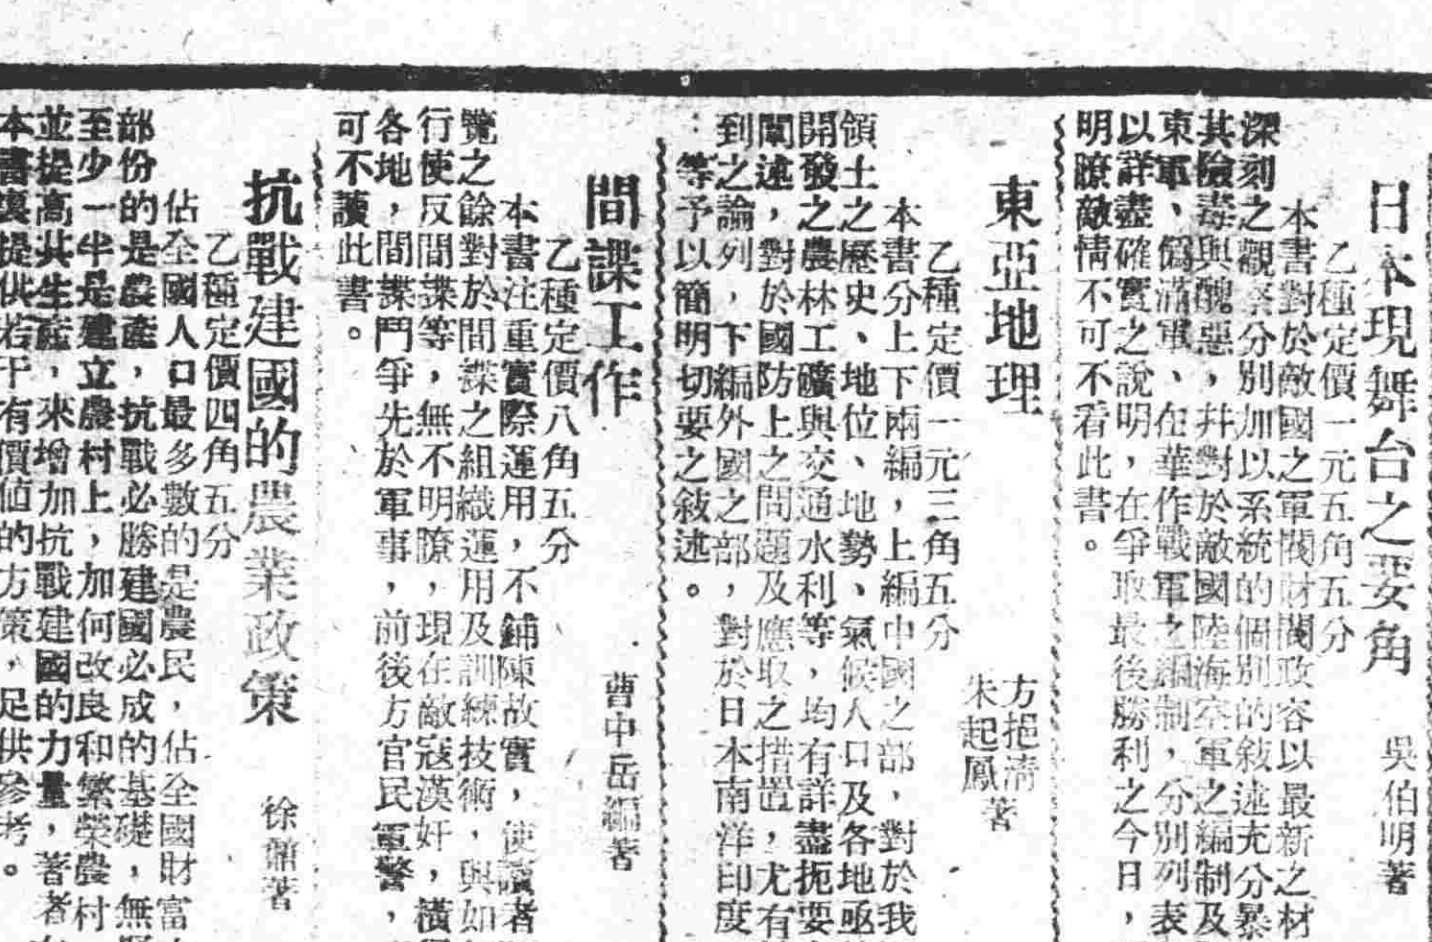 日本現舞台之要角
吳伯明著
乙種定價一元五角五分
本書對於敵國之軍閥財閥政客以最新之材
深刻之觀察分別加以系統的個別的敘述充分暴
其險毒與醜惡，幷對於敵國陸海空軍之編制及
東軍、偽滿軍、在華作戰軍之編制，分別列表
以詳盡確實之說明，在爭取最後勝利之今日，
明瞭敵情不可不看此書。
東亞地理
方挹清
朱起鳳
著
乙種定價一元三角五分
本書分上下兩編，上編中國之部，對於我
領土之歷史、地位、地勢、氣候人口及各地亟
開發之農林工礦與交通水利等，均有詳盡扼要
闡述，對於國防上之問題及應取之措置，尤有
到之論列，下編外國之部，對於日本南洋印度
等予以簡明切要之敍述。
間諜工作
曹中岳編著
乙種定價八角五分
本書注重實際運用，不鋪陳故實，使讀者
覽之餘對於間諜之組織運用及訓練技術，與如
行使反間諜等，無不明瞭，現在敵寇漢奸，橫
各地，間諜鬥爭先於軍事，前後方官民軍警，
可不讀此書。
抗戰建國的農業政策
徐 著
乙種定價四角五分
佔全國人口最多數的是農民，佔全國財富
部份的是農產，抗戰必勝建國必成的基礎，無
至少一半是建立農村上，加何改良和繁榮農村
並提高共生產，來增加抗戰建國的力量，著者
本書裏提供若干有價值的方策，足供參考。